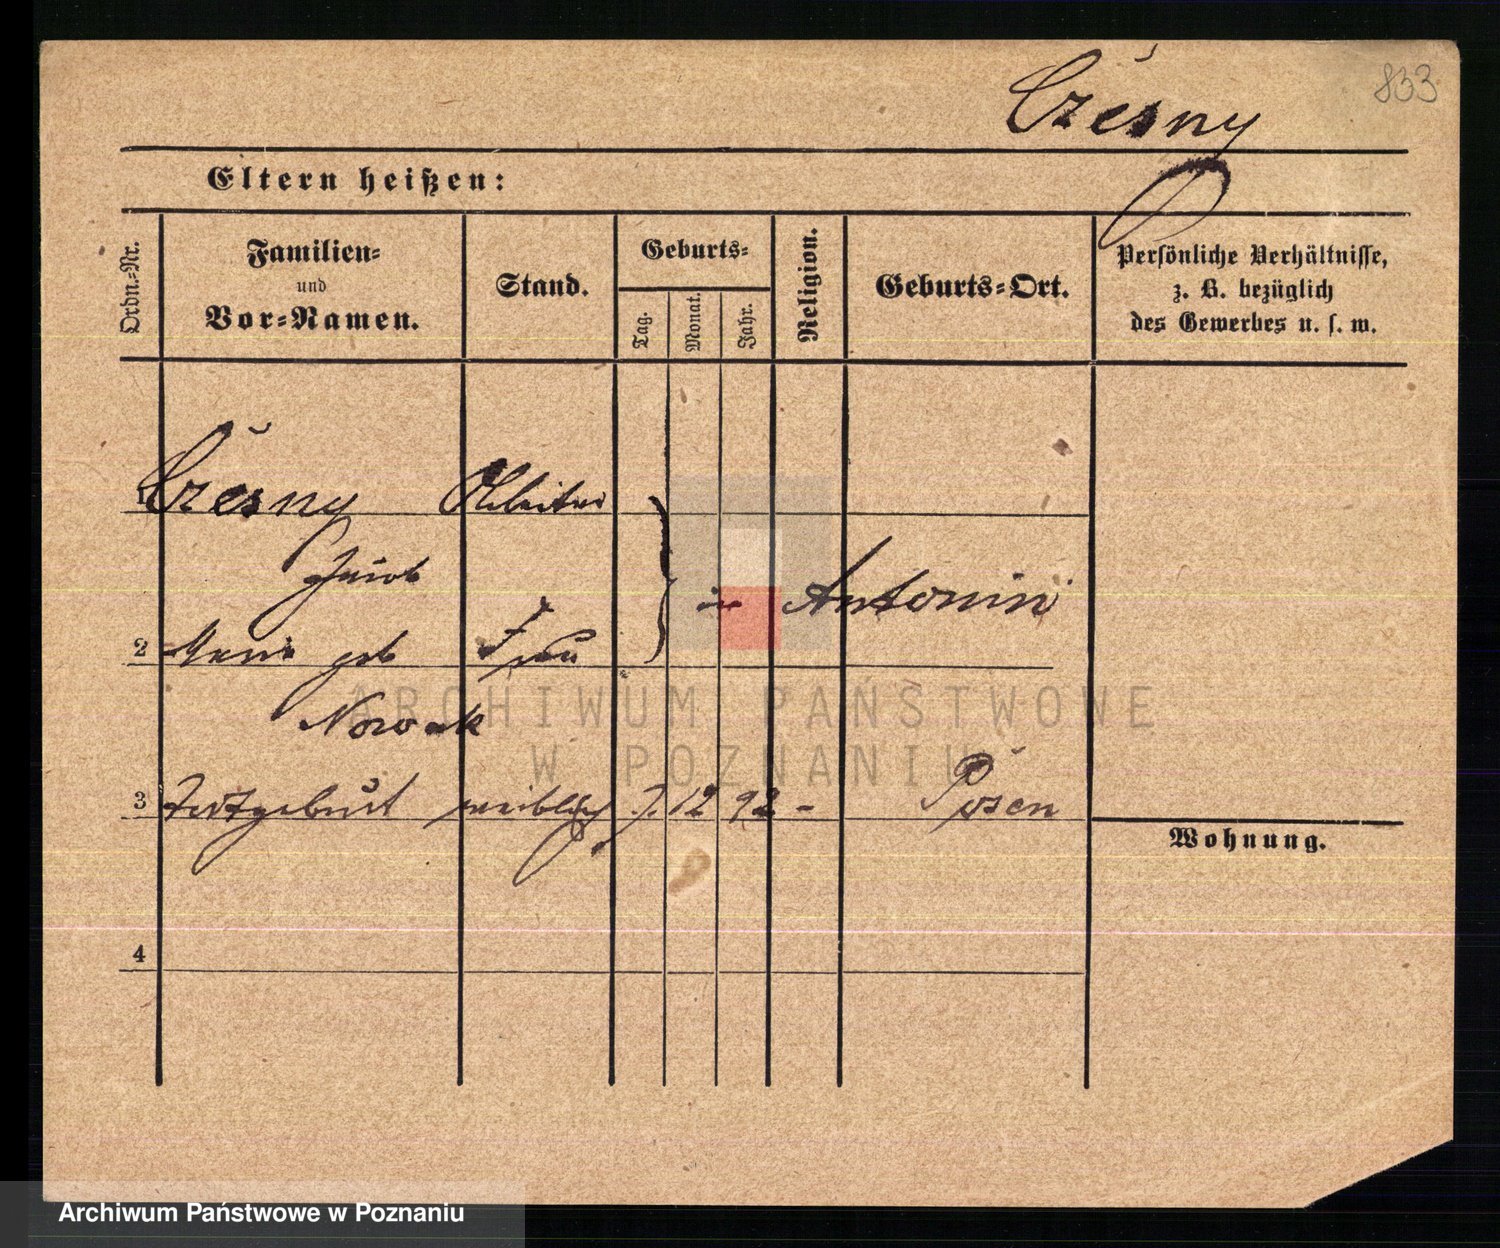 833
Czésny
Eltern heißen:
Ordn.=Nr.
Familien=
und
Vor=Namen.
Stand.
Geburts=
Tag.
Monat.
Jahr.
Religion.
Geburts=Ort.
Persönliche Verhältnisse,
z. B. bezüglich
des Gewerbes u. s. w.
1 Czésny Arbeiter
Jacob
in Antonin
2 geb Frau
Nowak
3 Todtgeburt weiblich 7. 12 92 - Posen
Wohnung.
4
ARCHIWUM PAŃSTWOWE
W POZNANIU
Archiwum Państwowe w Poznaniu